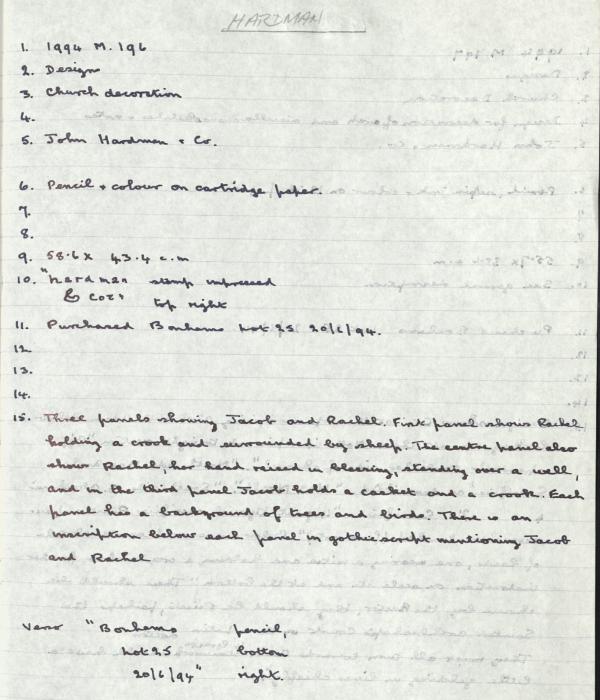 HARDMAN
1. 1994 M. 196
2. Design
3. Church decoration
4.
5. John Hardman & Co.
6. Pencil + colour on cartridge paper.
7.
8.
9. 58.6 x 43.4 c.m
10. "hardman stamp impressed
& Co's" top right
11. Purchased Bonhams Lot 25 20/6/94.
12.
13.
14.
15. Three panels showing Jacob and Rachel. First panel shows Rachel
holding a crook and surrounded by sheep. The centre panel also
shows Rachel, her hand raised in blessing, standing over a well,
and in the third panel Jacob holds a casket and a crook. Each
panel has a background of trees and birds. There is an
inscription below each panel in gothic script mentioning Jacob
and Rachel
Verso "Bonhams pencil,
Lot 25 bottom
20/6/94" right.